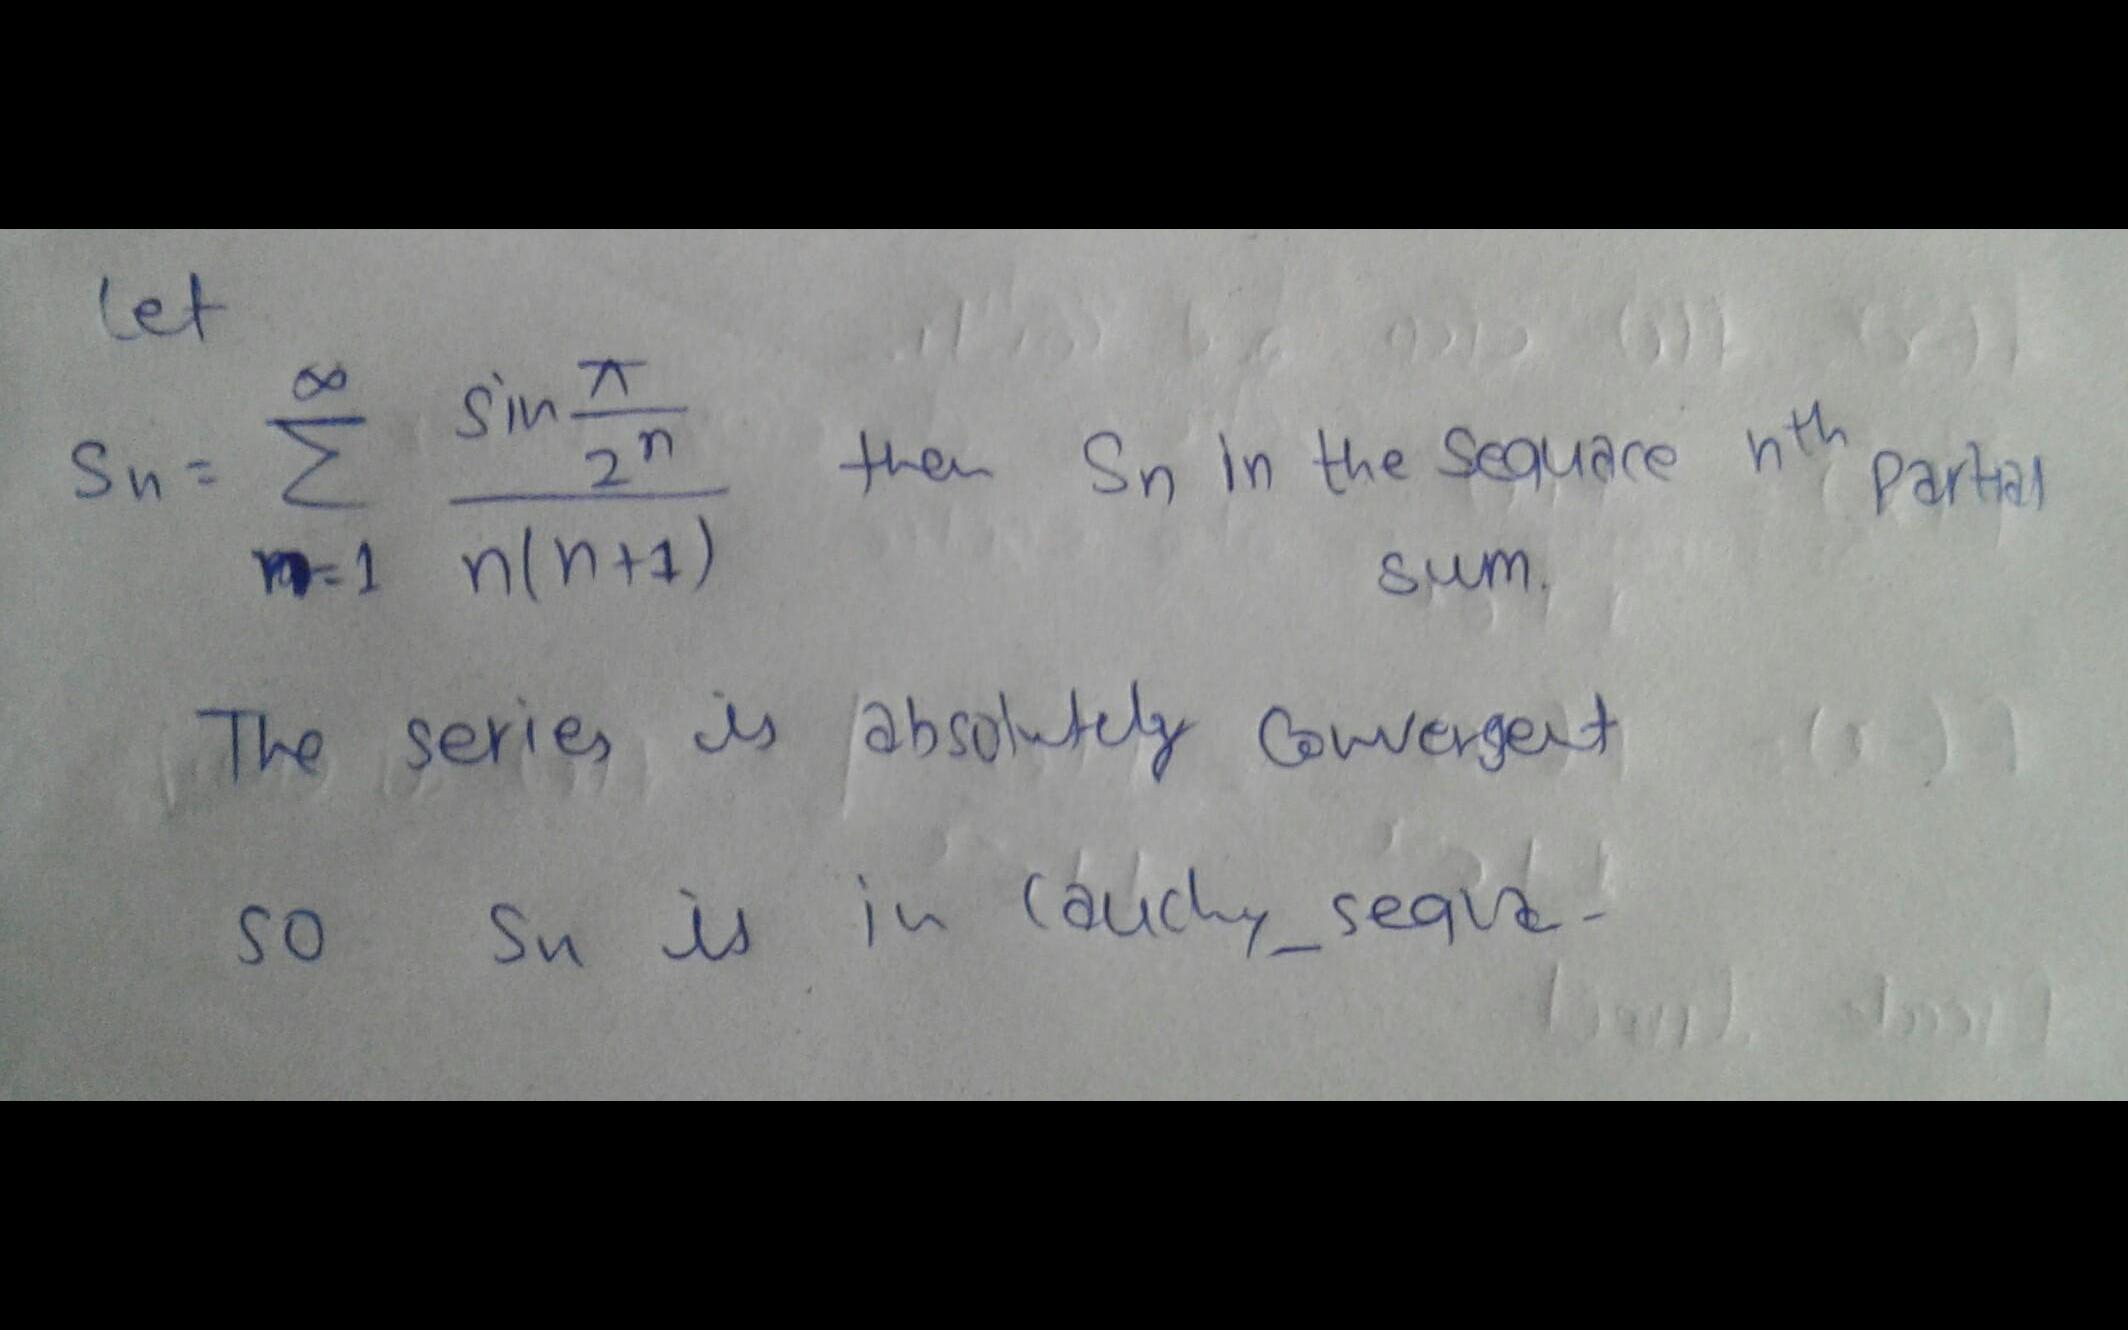 Let
Sn = ∞ ∑ n=1 sin π/2^n / n(n+1) then Sn in the sequace nth partial
sum.
The series is absolutely convergent
so Sn is in Cauchy_seque-